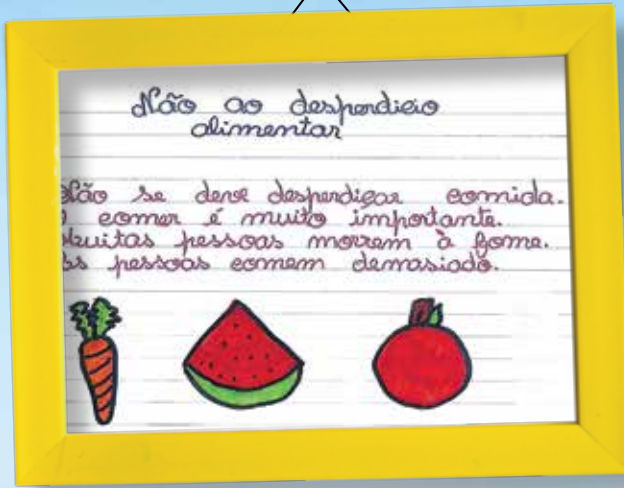 Não ao desperdicio
alimentar
Não se deve desperdiçar comida.
O comer é muito importante.
Muitas pessoas morrem à fome.
As pessoas comem demasiado.